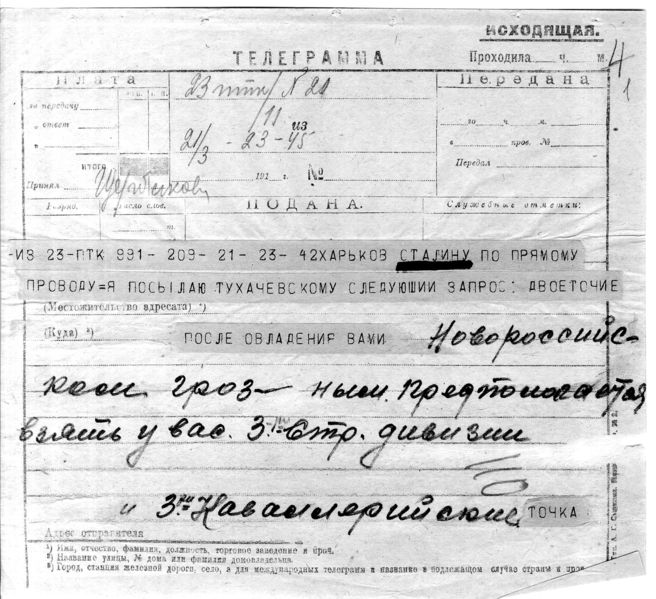 ИСХОДЯЩАЯ.
ТЕЛЕГРАММА
Проходила ч. м. 4
1
Плата
Передана
за передачу
23 птк/ № 21
" ответ
/11 из
го ч. м.
21/3 - 23 - 45
в пров. №
итого
191 г. №
Передал
Принял
Разряд. Число слов.
ПОДАНА.
Служебные отметки:
-ИЗ 23-ПТК 991- 209- 21- 23- 42ХАРЬКОВ СТАЛИНУ ПО ПРЯМОМУ
ПРОВОДУ=Я ПОСЫЛАЮ ТУХАЧЕВСКОМУ СЛЕДУЮШИЙ ЗАПРОС: ДВОЕТОЧИЕ
(Местожительство адресата) ¹)
(Куда) ²) ПОСЛЕ ОВЛАДЕНИЯ ВАМИ Новороссийс-
ком гроз- ным предпологается
взять у вас. 3 Стр. дивизии
и 3 Каваллерийские ТОЧКА
Адрес отправителя
¹) Имя, отчество, фамилия, должность, торговое заведение и проч.
²) Название улицы, № дома или фамилия домовладельца.
³) Город, станция железной дороги, село, а для международных телеграмм и название в подлежащем случае страны и